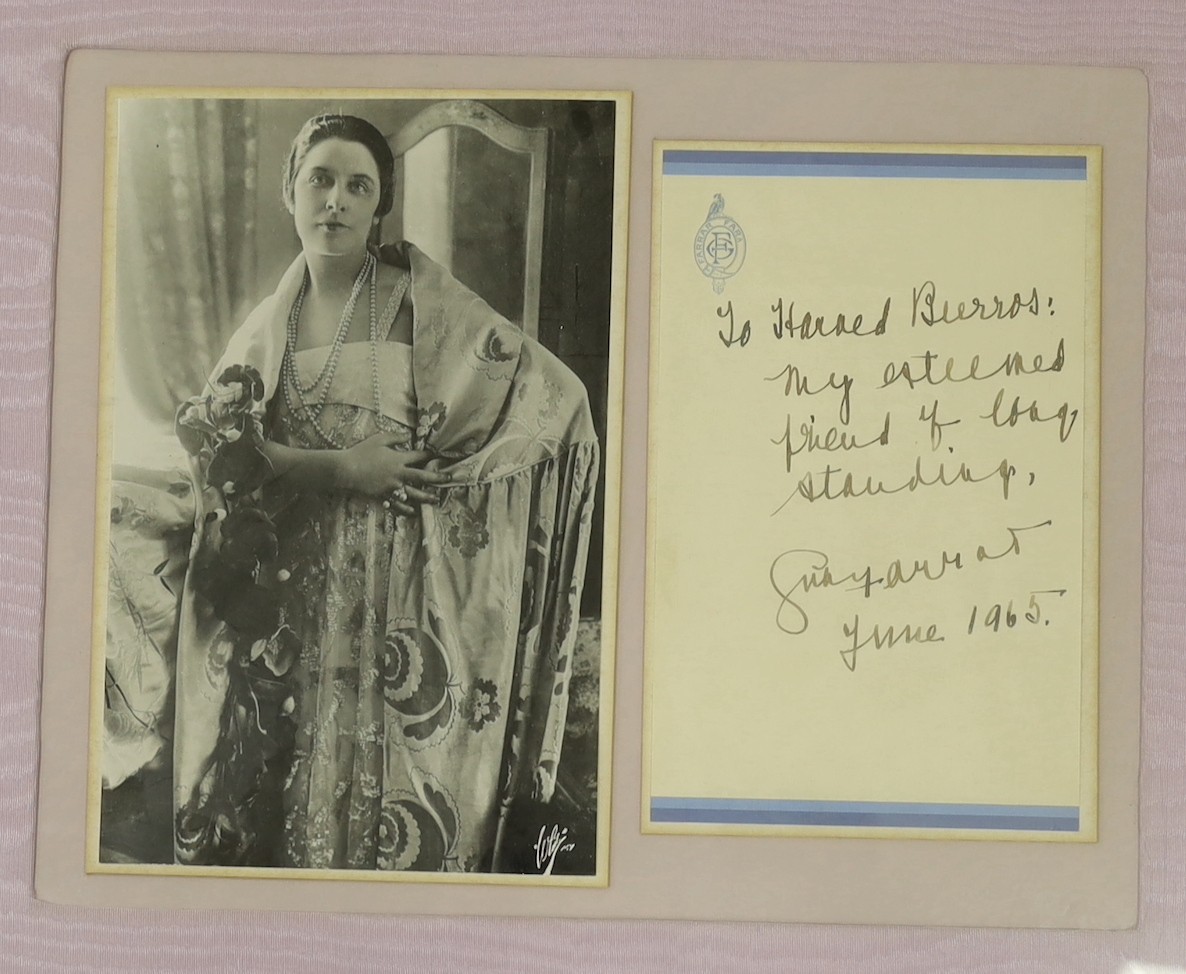 FARRAR
To Harold Burros:
My esteemed
friend of long
standing,
June 1965.